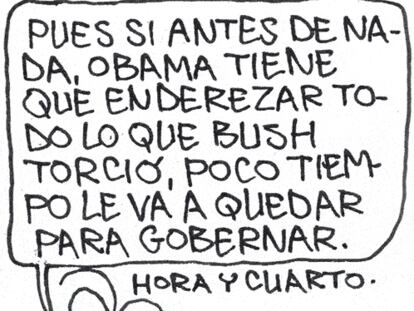 PUES SI ANTES DE NA-
DA, OBAMA TIENE
QUE ENDEREZAR TO-
DO LO QUE BUSH
TORCIÓ, POCO TIEM-
PO LE VA A QUEDAR
PARA GOBERNAR.
HORA Y CUARTO.